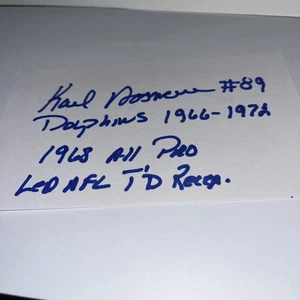 Karl Noonan #89
Dolphins 1966-1972
1968 All Pro
Led AFL T'D Recep.